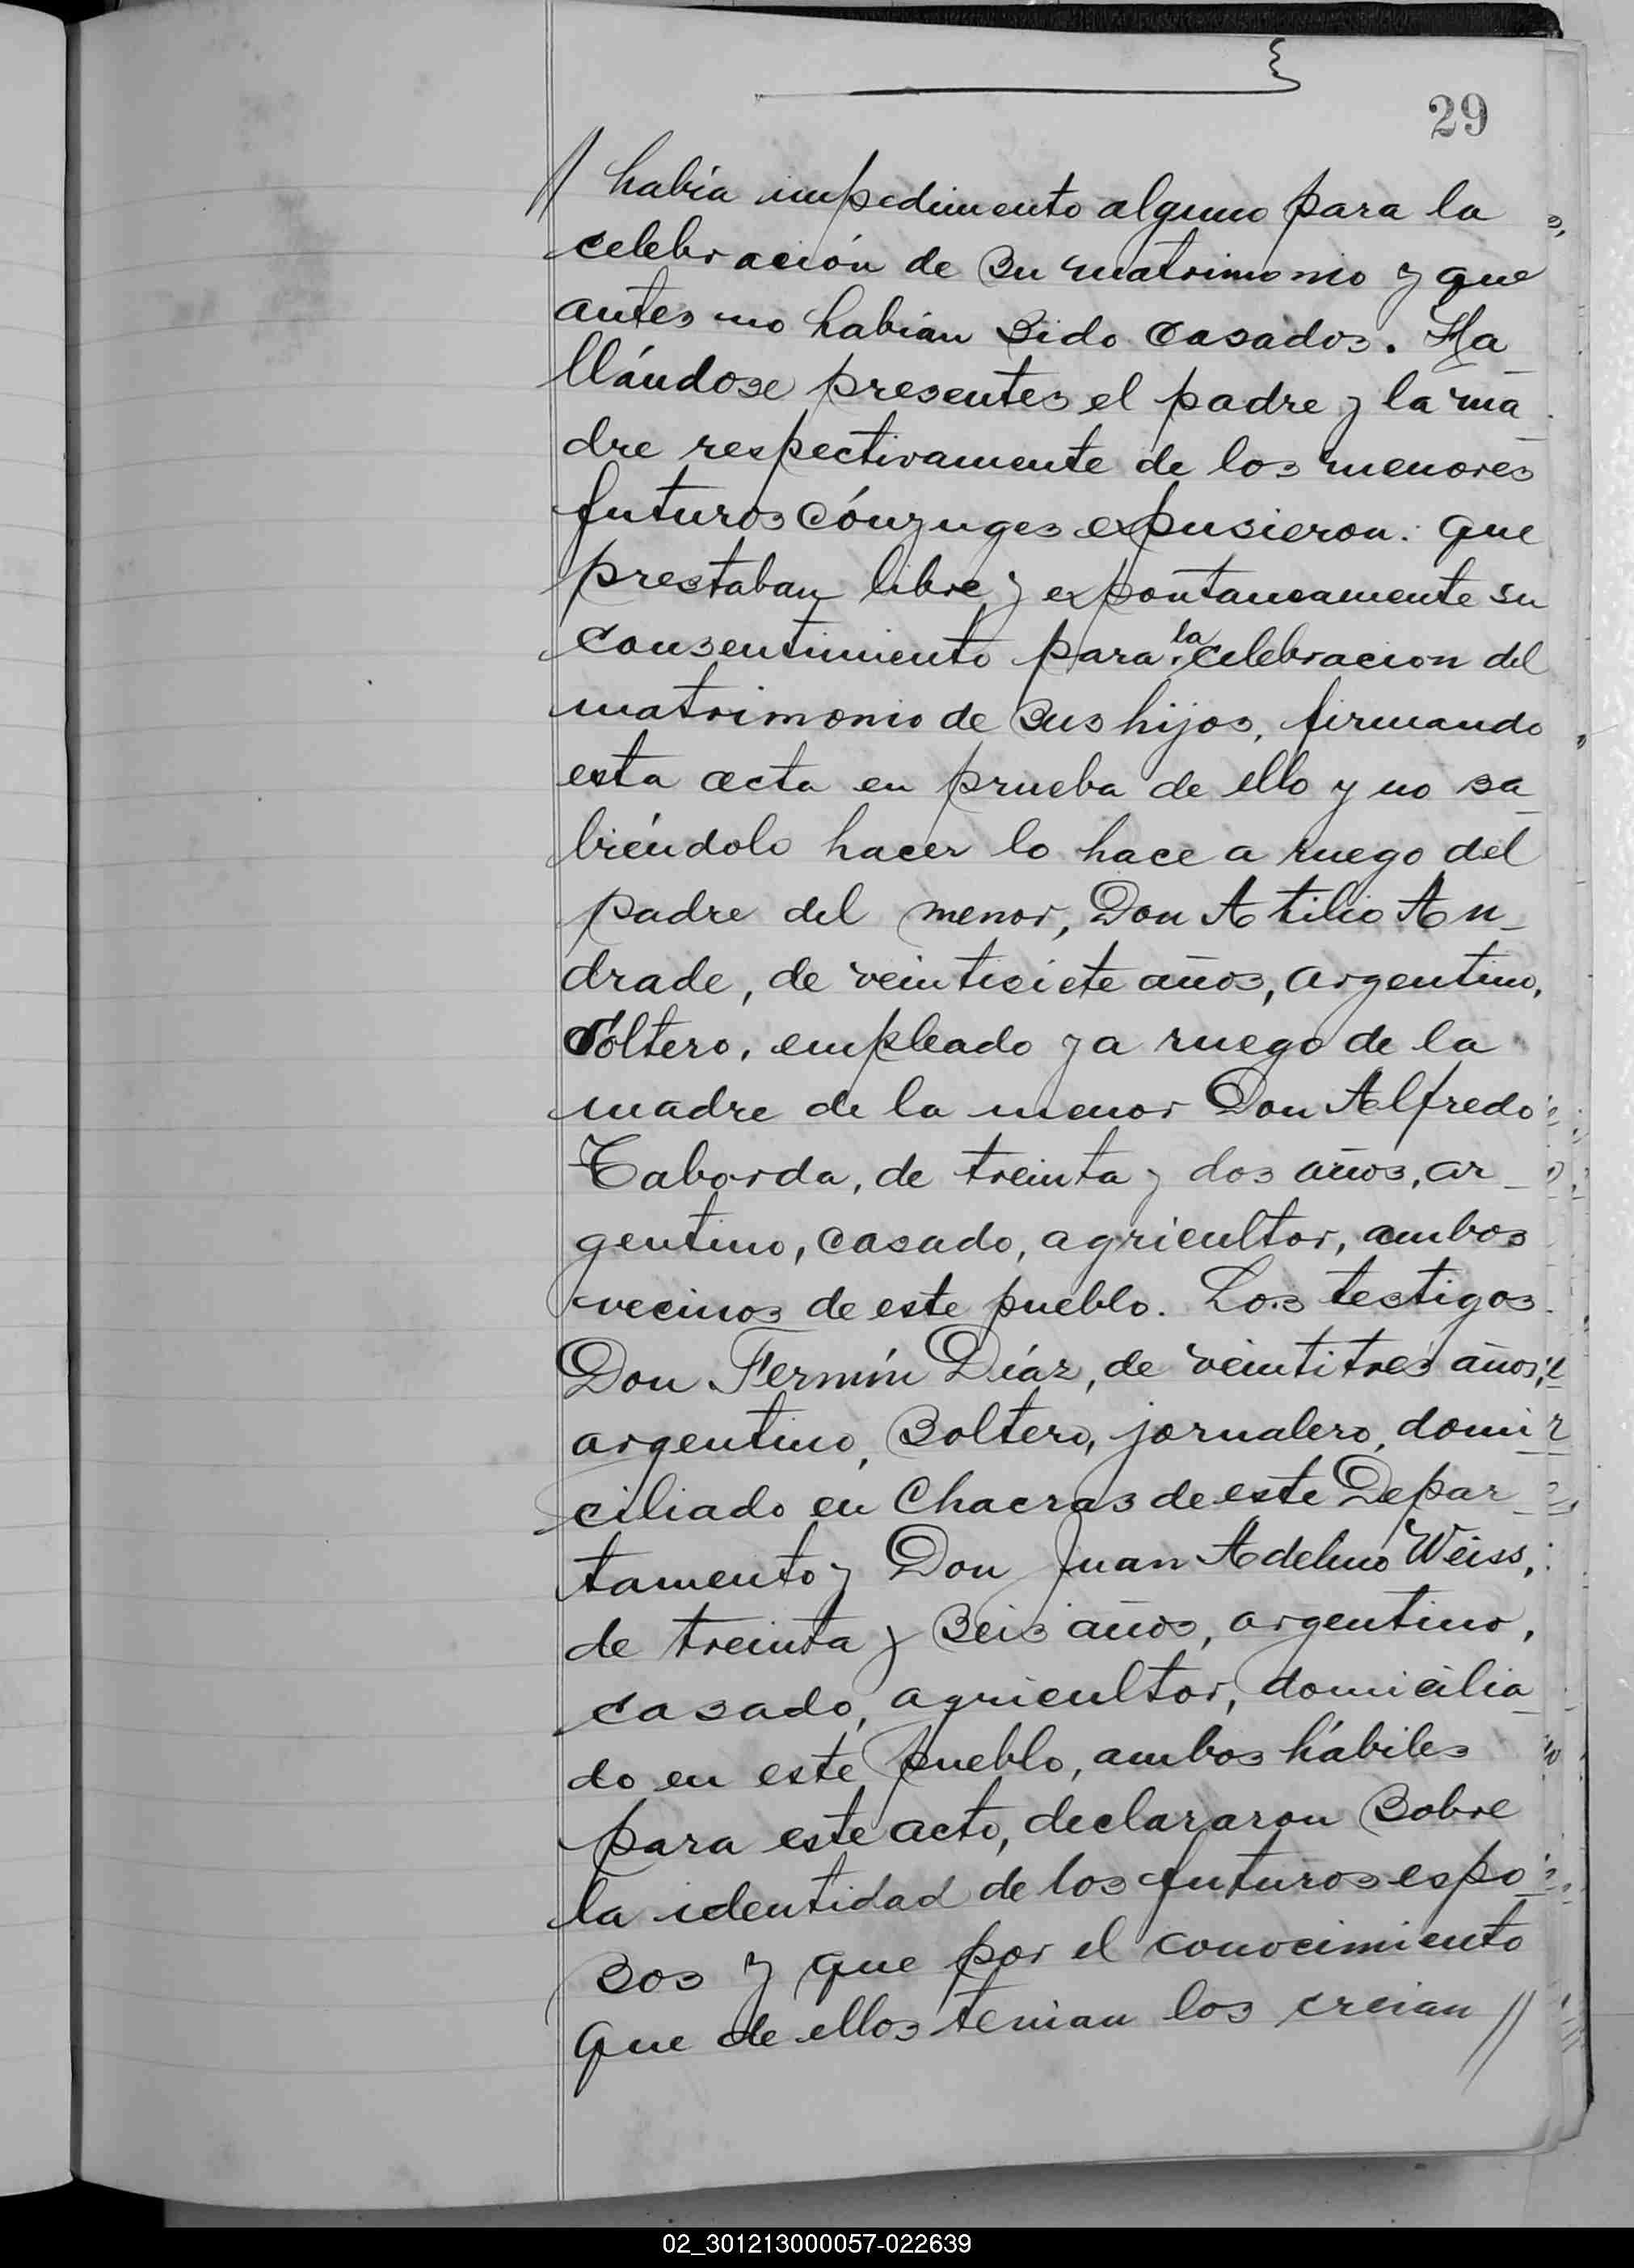 29
// había impedimento alguno para la
celebración de su matrimonio y que
antes no habían sido casados. Ha_
llándose presentes el padre y la ma_
dre respectivamente de los menores
futuros cónyuges expusieron: que
prestaban libre y expontaneamente su
consentimiento para la celebracion del
matrimonio de sus hijos, firmando
esta acta en prueba de ello y no sa_
biéndolo hacer lo hace a ruego del
padre del menor, Don Atilio An_
drade, de veintisiete años, argentino,
soltero, empleado y a ruego de la
madre de la menor Don Alfredo
Taborda, de treinta y dos años, ar_
gentino, casado, agricultor, ambos
vecinos de este pueblo. Los testigos
Don Fermín Díaz, de veintitres años,
argentino, soltero, jornalero, domi_
ciliado en Chacras de este Depar_
tamento y Don Juan Adelmo Weiss,
de treinta y seis años, argentino,
casado, agricultor, domicilia_
do en este pueblo, ambos hábiles
para este acto, declararon sobre
la identidad de los futuros espo_
sos y que por el conocimiento
que de ellos tenian los creian //
02_301213000057-022639